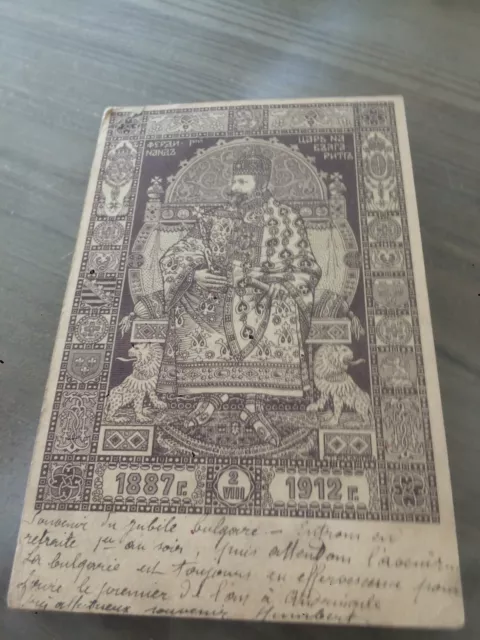 ФЕРДИ
НАНДЪ
ЦАРЬ НА
БЪЛГА
РИТѢ
1887 г.
2
VIII
1912 г.
Souvenir du jubilé bulgare —
retraite au soir, Puis attendons l'avenir
La bulgarie est toujours en effervescence pour
le premier de l'an à Andrinople
affectueux souvenir